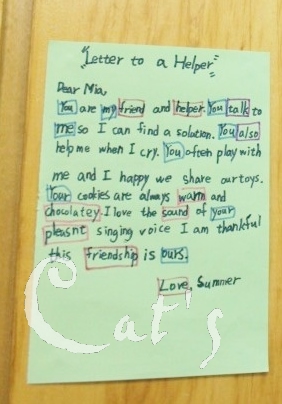 "Letter to a Helper"
Dear Mia,
You are my friend and helper. You talk to
me so I can find a solation. You also
help me when I cry. You often play with
me and I happy we share our toys.
Your cookies are always warm and
chocolatey. I love the sound of your
pleasnt singing voice I am thankful
this friendship is ours.
Love, Summer
Cat's